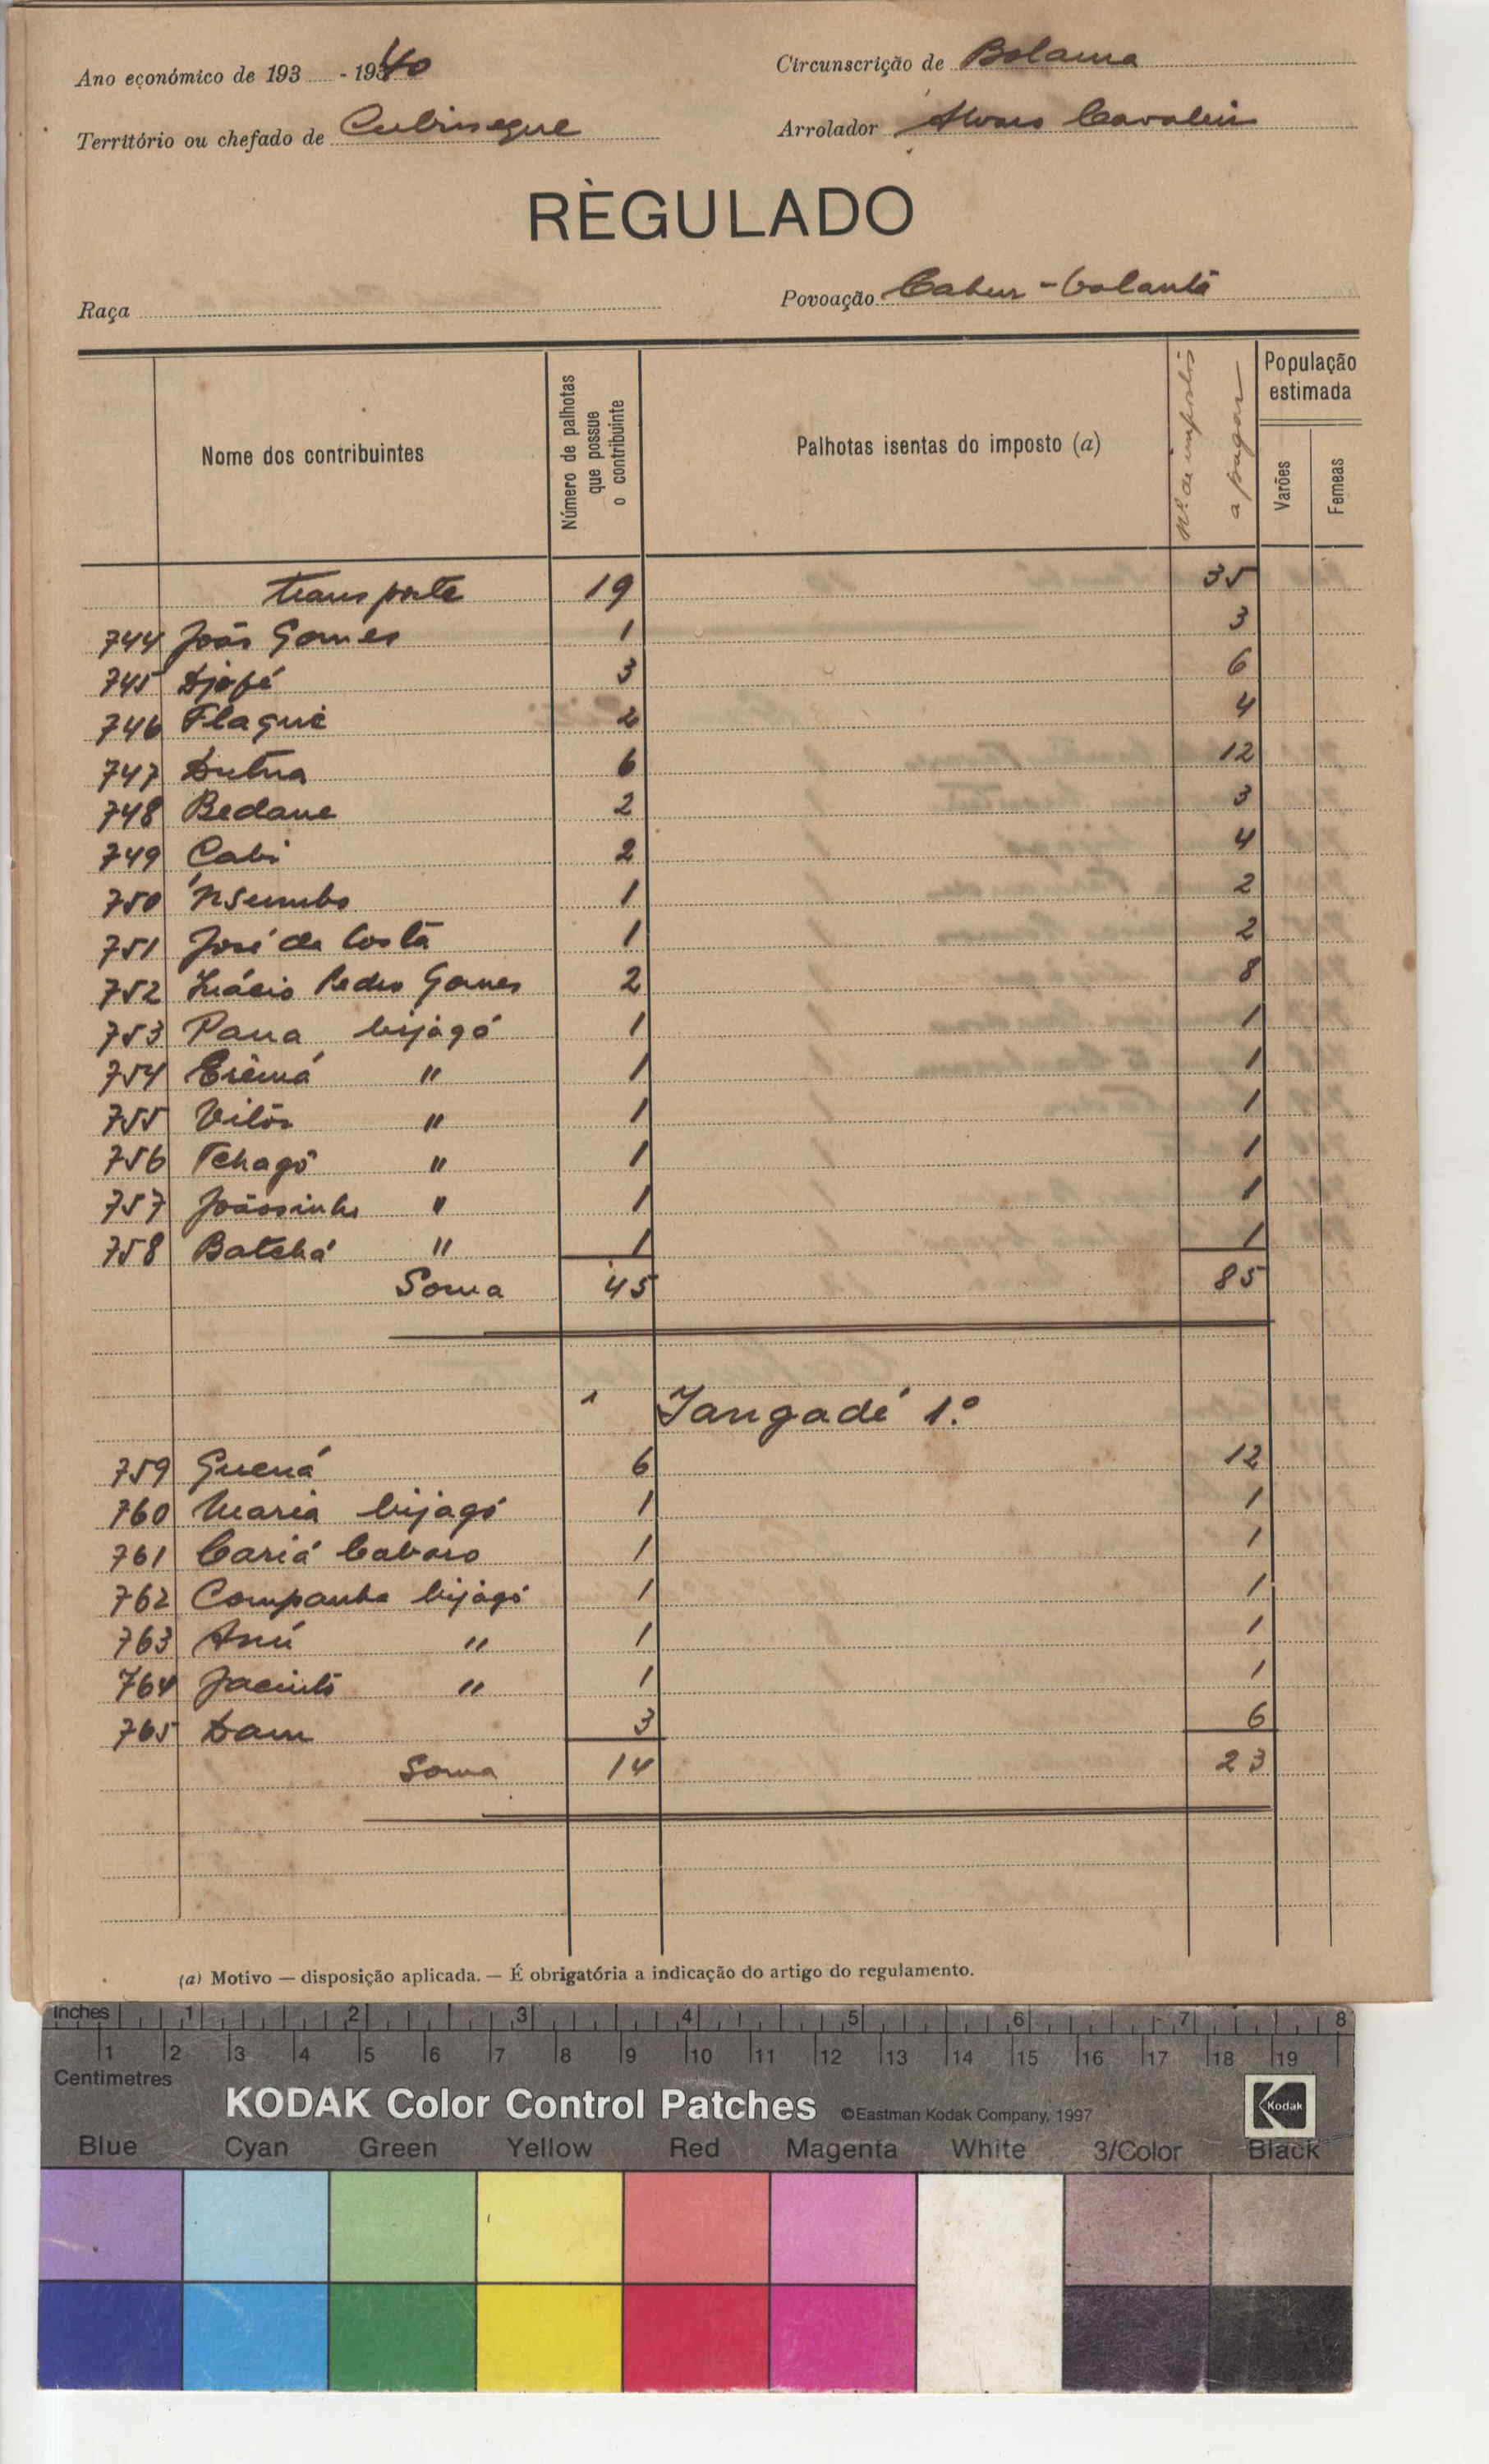 Ano económico de 193 - 1940
Circunscrição de Bolama
Território ou chefado de Cubisseque
Arrolador Alvaro
RÈGULADO
Raça
Povoação -balanta
Nome dos contribuintes
Número de palhotas que possue o contribuinte
Palhotas isentas do imposto (a)
Nº de impostos a pagar
População estimada
Varões
Femeas
Transporte 19 35
744 João Gomes 1 3
745 Djofé 3 6
746 Flaguè 2 4
747 Dutna 6 12
748 Bedane 2 3
749 Cabi 2 4
750 'Nsumbo 1 2
751 José da Costa 1 2
752 Inácio Pedro Gomes 2 8
753 Pana bijagó 1 1
754 " 1 1
755 Vitôr " 1 1
756 Tchagô " 1 1
757 Joãosinho " 1 1
758 Batchá " 1 1
Soma 45 85
Jangadé 1.º
759 Guená 6 12
760 Maria bijagó 1 1
761 Cariá Caboro 1 1
762 Companha bijagó 1 1
763 " 1 1
764 Jacinto " 1 1
765 Dam 3 6
Soma 14 23
(a) Motivo — disposição aplicada. — É obrigatória a indicação do artigo do regulamento.
Inches 1 2 3 4 5 6 7 8
1 2 3 4 5 6 7 8 9 10 11 12 13 14 15 16 17 18 19
Centimetres
KODAK Color Control Patches ©Eastman Kodak Company, 1997 Kodak
Blue Cyan Green Yellow Red Magenta White 3/Color Black